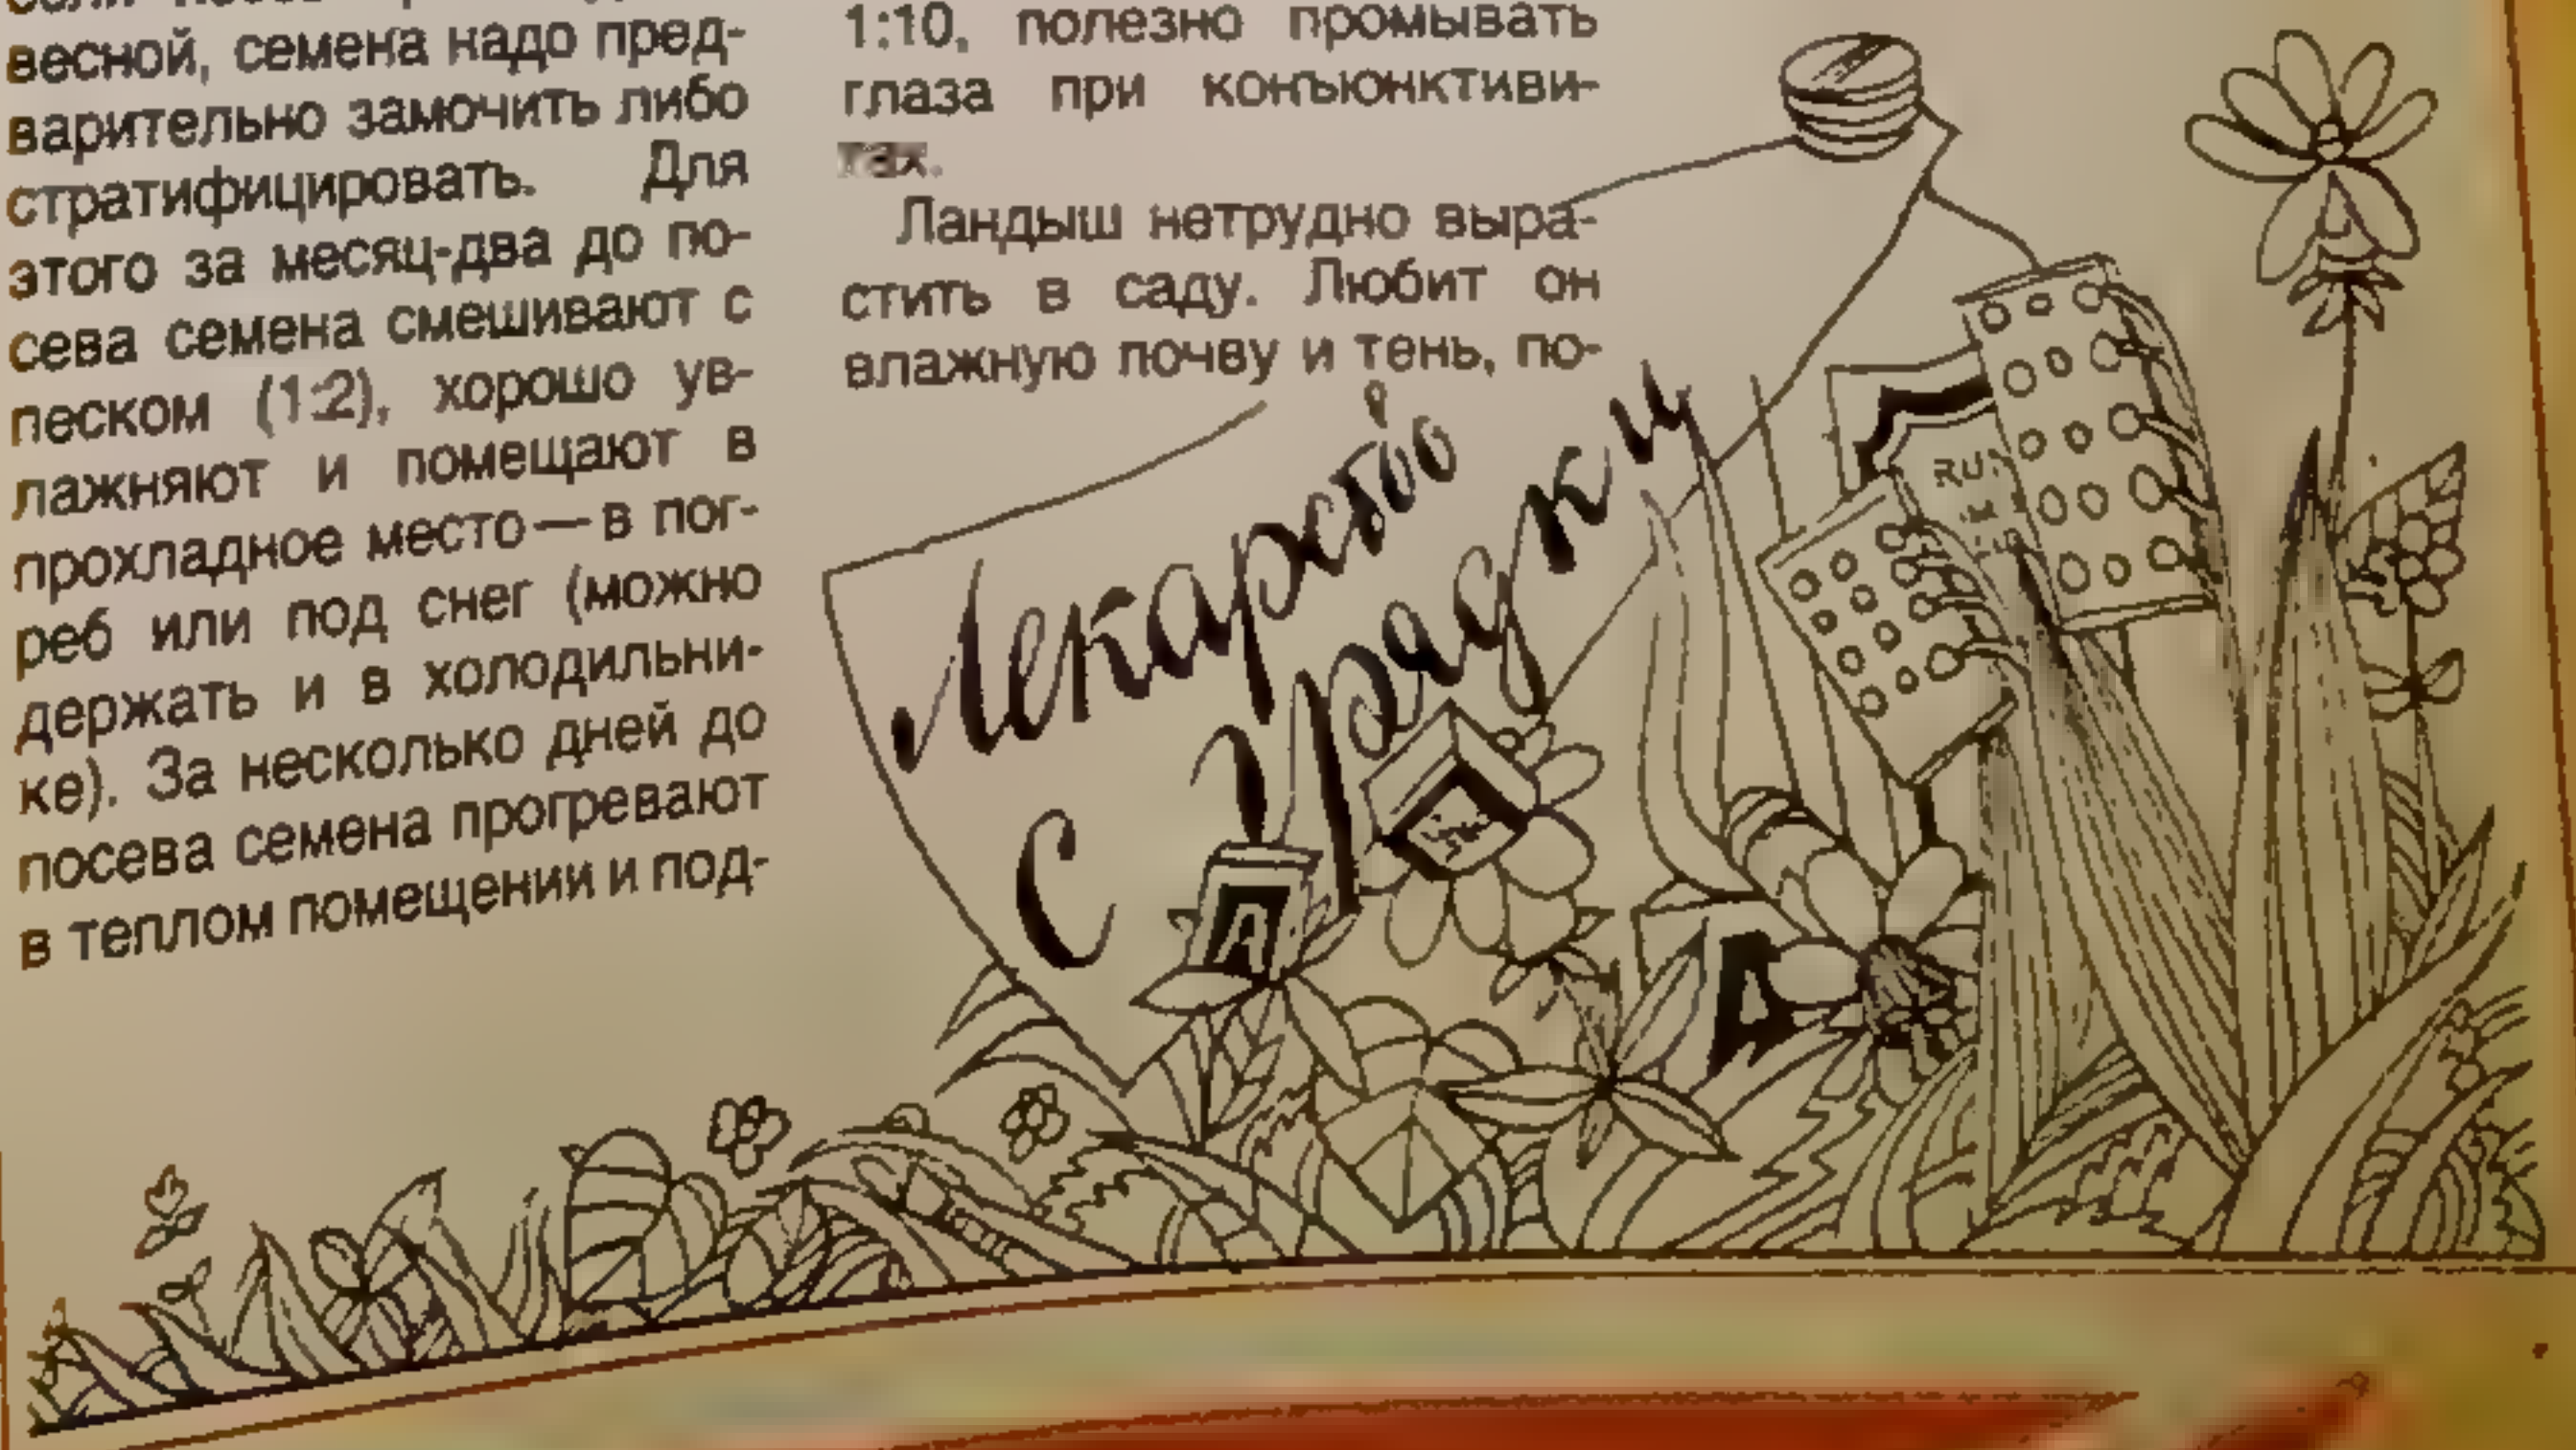 весной, семена надо пред-
варительно замочить либо
стратифицировать. Для
этого за месяц-два до по-
сева семена смешивают с
песком (1:2), хорошо ув-
лажняют и помещают в
прохладное место — в пог-
реб или под снег (можно
держать и в холодильни-
ке). За несколько дней до
посева семена прогревают
в теплом помещении и под-
1:10, полезно промывать
глаза при конъюнктиви-
тах.
Ландыш нетрудно выра-
стить в саду. Любит он
влажную почву и тень, по-
Лекарство
с грядки
RU
A